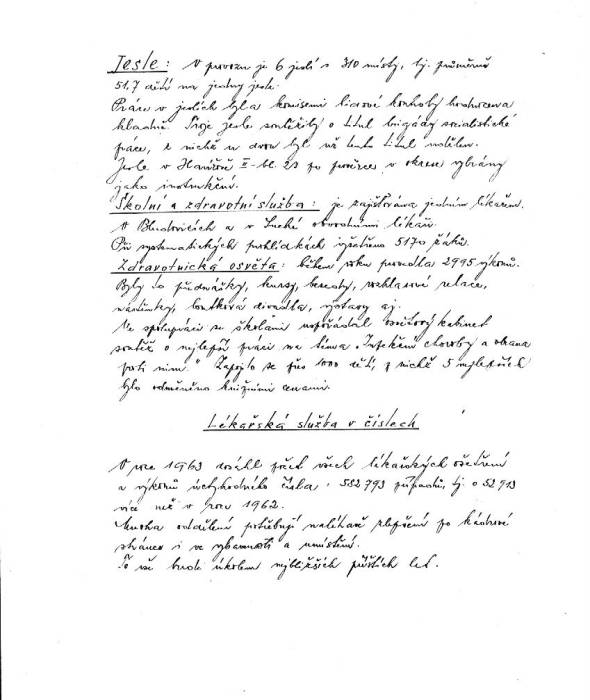 Jesle: V provozu je 6 jeslí s 310 místy, tj. průměrně
51,7 dětí na jedny jesle.
Práce v jeslích byla komisemi lidové kontroly hodnocena
kladně. Troje jesle soutěžily o titul brigády socialistické
práce, z nichž u dvou byl už tento titul udělen.
Jesle v Havířově II - bl. 23 po prověrce v okrese vybrány
jako instrukční.
Školní a zdravotní služba: je zajišťována jedním lékařem.
V Bludovicích a v Suché obvodními lékaři.
Při systematických prohlídkách vyšetřeno 5170 žáků.
Zdravotnická osvěta: během roku provedla 2995 výkonů.
Byly to přednášky, kursy, besedy, rozhlasové relace,
nástěnky, loutková divadla, výstavy aj.
Ve spolupráci se školami uspořádal osvětový kabinet
soutěž o nejlepší práci na téma "Infekční choroby a obrana
proti nim." Zapojilo se přes 1000 dětí, z nichž 5 nejlepších
bylo odměněno knižními cenami.
Lékařská služba v číslech
V roce 1963 dosáhl počet všech lékařských ošetření
a výkonů úctyhodného čísla: 582 793 případů, tj. o 52 913
více než v roce 1962.
Mnoha oddělení potřebují naléhavě zlepšení po kádrové
stránce i ve vybavenosti a umístění.
To vše bude úkolem nejbližších příštích let.